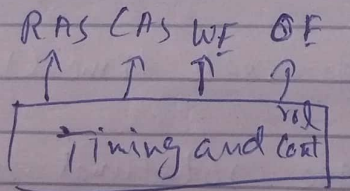 RAS CAS WE OE
Timing and Control